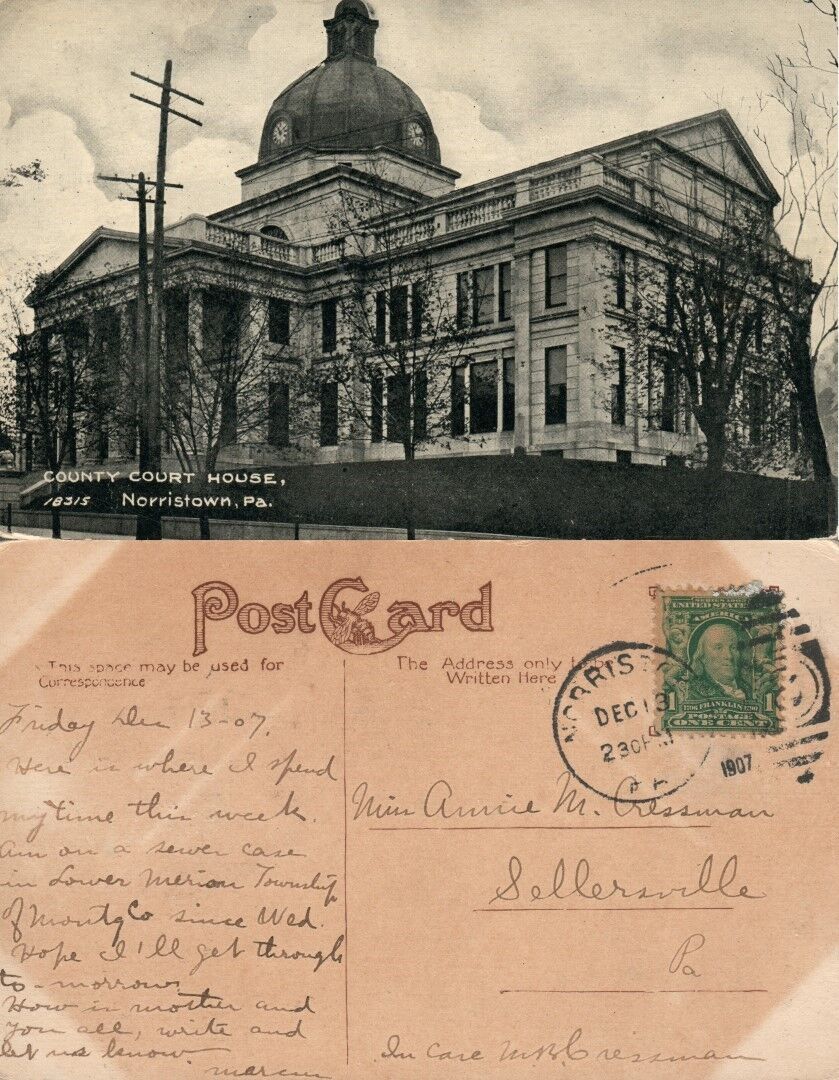 COUNTY COURT HOUSE,
18315 Norristown, Pa.
Post Card
This space may be used for
Correspondence
The Address only to be
Written Here
SERIES 1902
UNITED STATES OF
AMERICA
1706 FRANKLIN 1790
1 1
POSTAGE
ONE CENT
NORRISTO
DEC 13
230 PM
PA
1907
Friday Dec 13-07.
Here is where I spend
my time this week.
Am on a sewer case
in Lower Merion Township
of Montg Co since Wed.
Hope I'll get through
to-morrow
How is mother and
you all, write and
let us know.
Miss Annie M. Cressman
Sellersville
Pa
In care M.B. Cressman